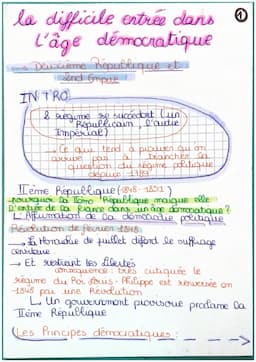 ①
La difficile entrée dans
L'âge démocratique
→ Deuxième République et
2nd Empire
INTRO
2 régime se succèdent (un
Républicain, l'autre
Impérial)
→ Ce qui tend à prouver qu'on
arrive pas à trancher la
question du régime politique
depuis 1789
IIème République (1848-1851)
pourquoi la IIème République marque elle
L'entrée de la france dans un âge démocratique?
L'Affirmation de la démocratie politique
Révolution de février 1848
→ La Monarchie de juillet défend le suffrage
censitaire
→ Et restreint les libertés
conséquence: très critiquée le
régime du Roi Louis-Philippe est renversée en
1848 par une Révolution
↳ Un gouvernement provisoire proclame la
IIème République
(Les Principes démocratiques: